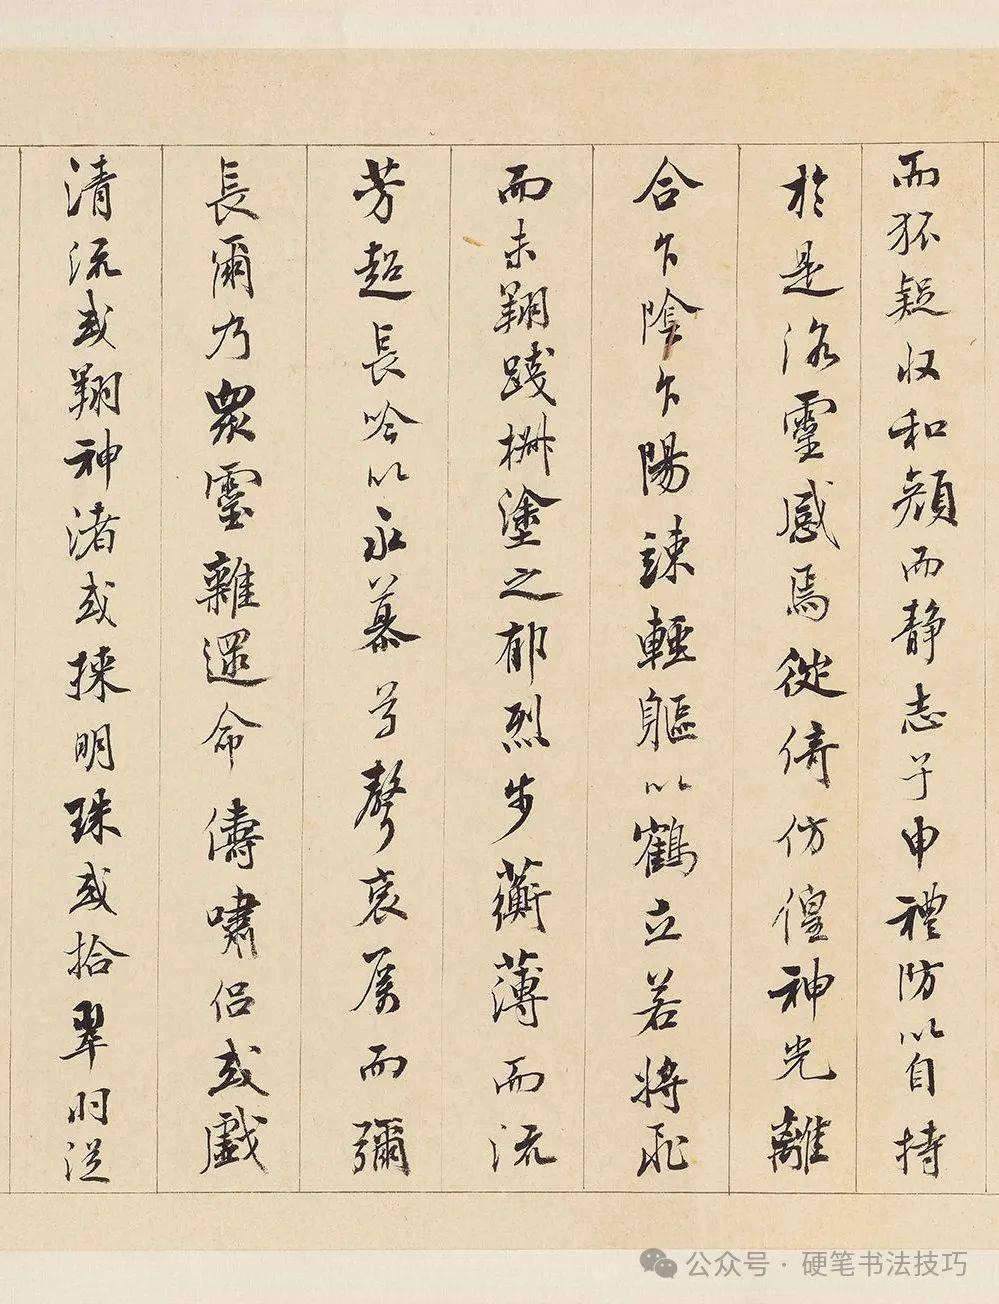 而狐疑収和顔而静志兮申禮防以自持
於是洛靈感焉徙倚仿偟神光離
合乍陰乍陽竦輕軀以鶴立若將飛
而未翔踐椒塗之郁烈步蘅薄而流
芳超長吟以永慕兮聲哀厲而彌
長爾乃眾靈雜遝命儔嘯侣或戲
清流或翔神渚或採明珠或拾翠羽從
公众号 · 硬笔书法技巧